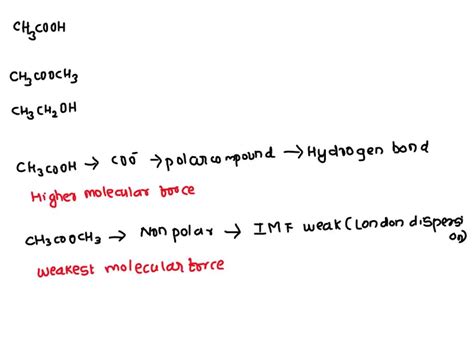 CH₃COOH
CH₃COOCH₃
CH₃CH₂OH
CH₃COOH → COO⁻ → polar compound → Hydrogen bond
Higher molecular force
CH₃COOCH₃ → Non polar → IMF weak (London dispersion)
weakest molecular force